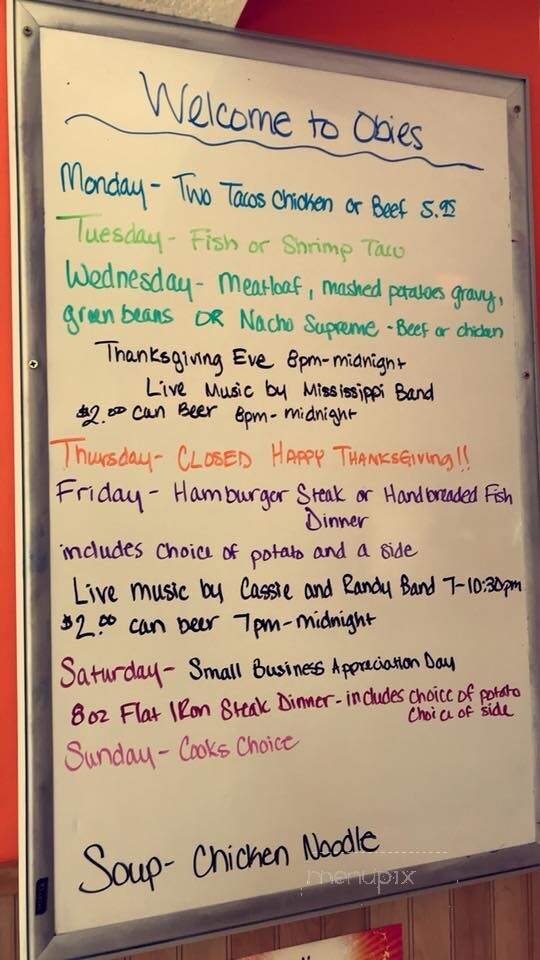 Welcome to Obies
Monday - Two Tacos Chicken or Beef 5.95
Tuesday - Fish or Shrimp Taco
Wednesday - Meatloaf, mashed potatoes gravy,
green beans OR Nacho Supreme - Beef or chicken
Thanksgiving Eve 8pm-midnight
Live Music by Mississippi Band
$2.00 can Beer 8pm-midnight
Thursday - CLOSED HAPPY THANKSGIVING!!
Friday - Hamburger Steak or Handbreaded Fish
Dinner
includes choice of potato and a side
Live music by Cassie and Randy Band 7-10:30pm
$2.00 can beer 7pm-midnight
Saturday - Small Business Appreciation Day
8oz Flat IRon Steak Dinner - includes choice of potato
choice of side
Sunday - Cooks Choice
Soup - Chicken Noodle
menupix